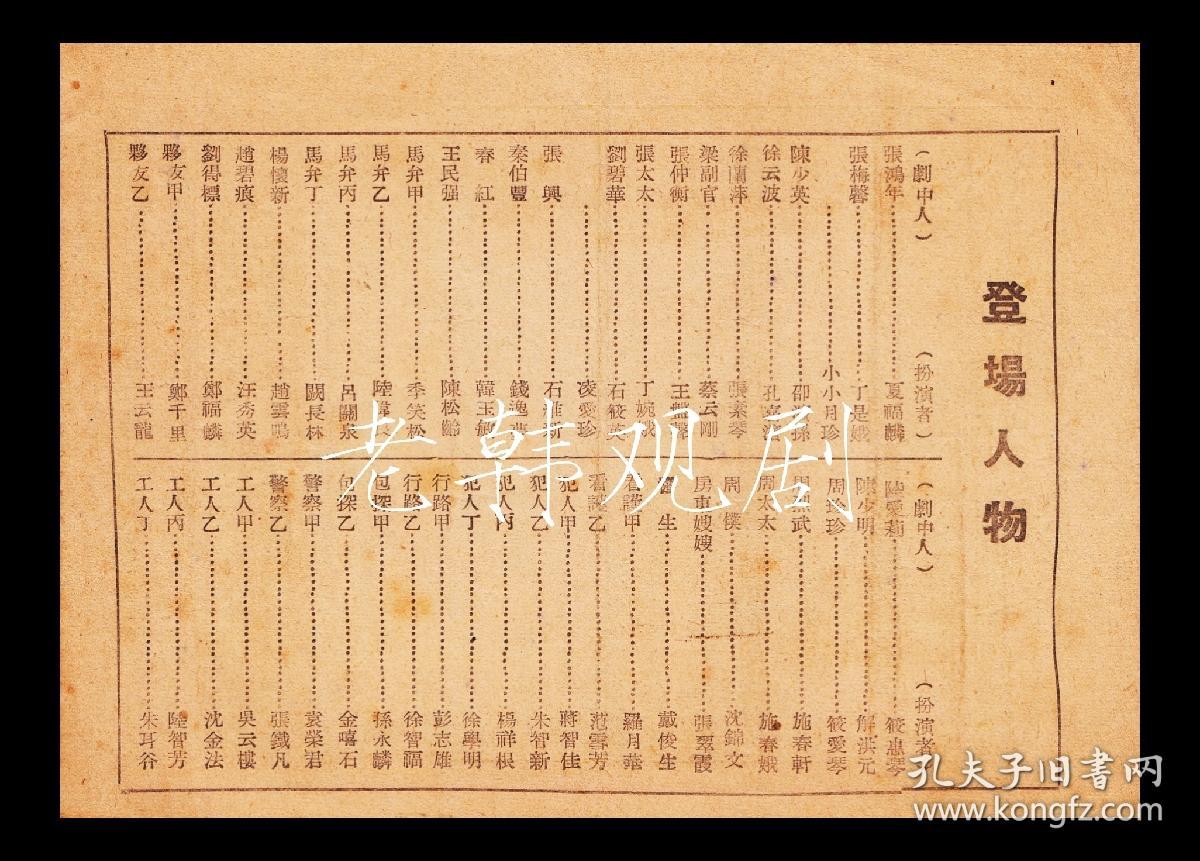 登場人物
(劇中人)(扮演者)
張鴻年 夏福麟
張梅馨 丁是娥
小小月珍
陳少英 邵
徐云波 孔
徐蘭萍 張素琴
梁副官 蔡云剛
張仲衡 王盤聲
張太太 丁婉娥
劉碧華 石筱英
凌愛珍
張興 石
秦伯豐 錢逸
春紅 韓玉敏
王民强 陳松齡
馬弁甲 季笑松
馬弁乙 陸
馬弁丙 呂闢泉
馬弁丁 闕長林
楊懷新 趙雲鳴
趙碧痕 汪秀英
劉得標 鄭福麟
夥友甲 鄭千里
夥友乙 王云龍
(劇中人)(扮演者)
陸愛莉 筱惠琴
陳少明 解洪元
周珍珍 筱愛琴
周 武 施春軒
周太太 施春娥
周僕 沈錦文
房東嫂嫂 張翠霞
生 戴俊生
看護甲 羅月華
看護乙 范雪芳
犯人甲 蔣智佳
犯人乙 朱智新
犯人丙 楊祥根
犯人丁 徐學明
行路甲 彭志雄
行路乙 徐智福
包探甲 孫永麟
包探乙 金嘻石
警察甲 袁榮君
警察乙 張鐵凡
工人甲 吳云樓
工人乙 沈金法
工人丙 陸智芳
工人丁 朱耳谷
老韩观剧
孔夫子旧书网
www.kongfz.com